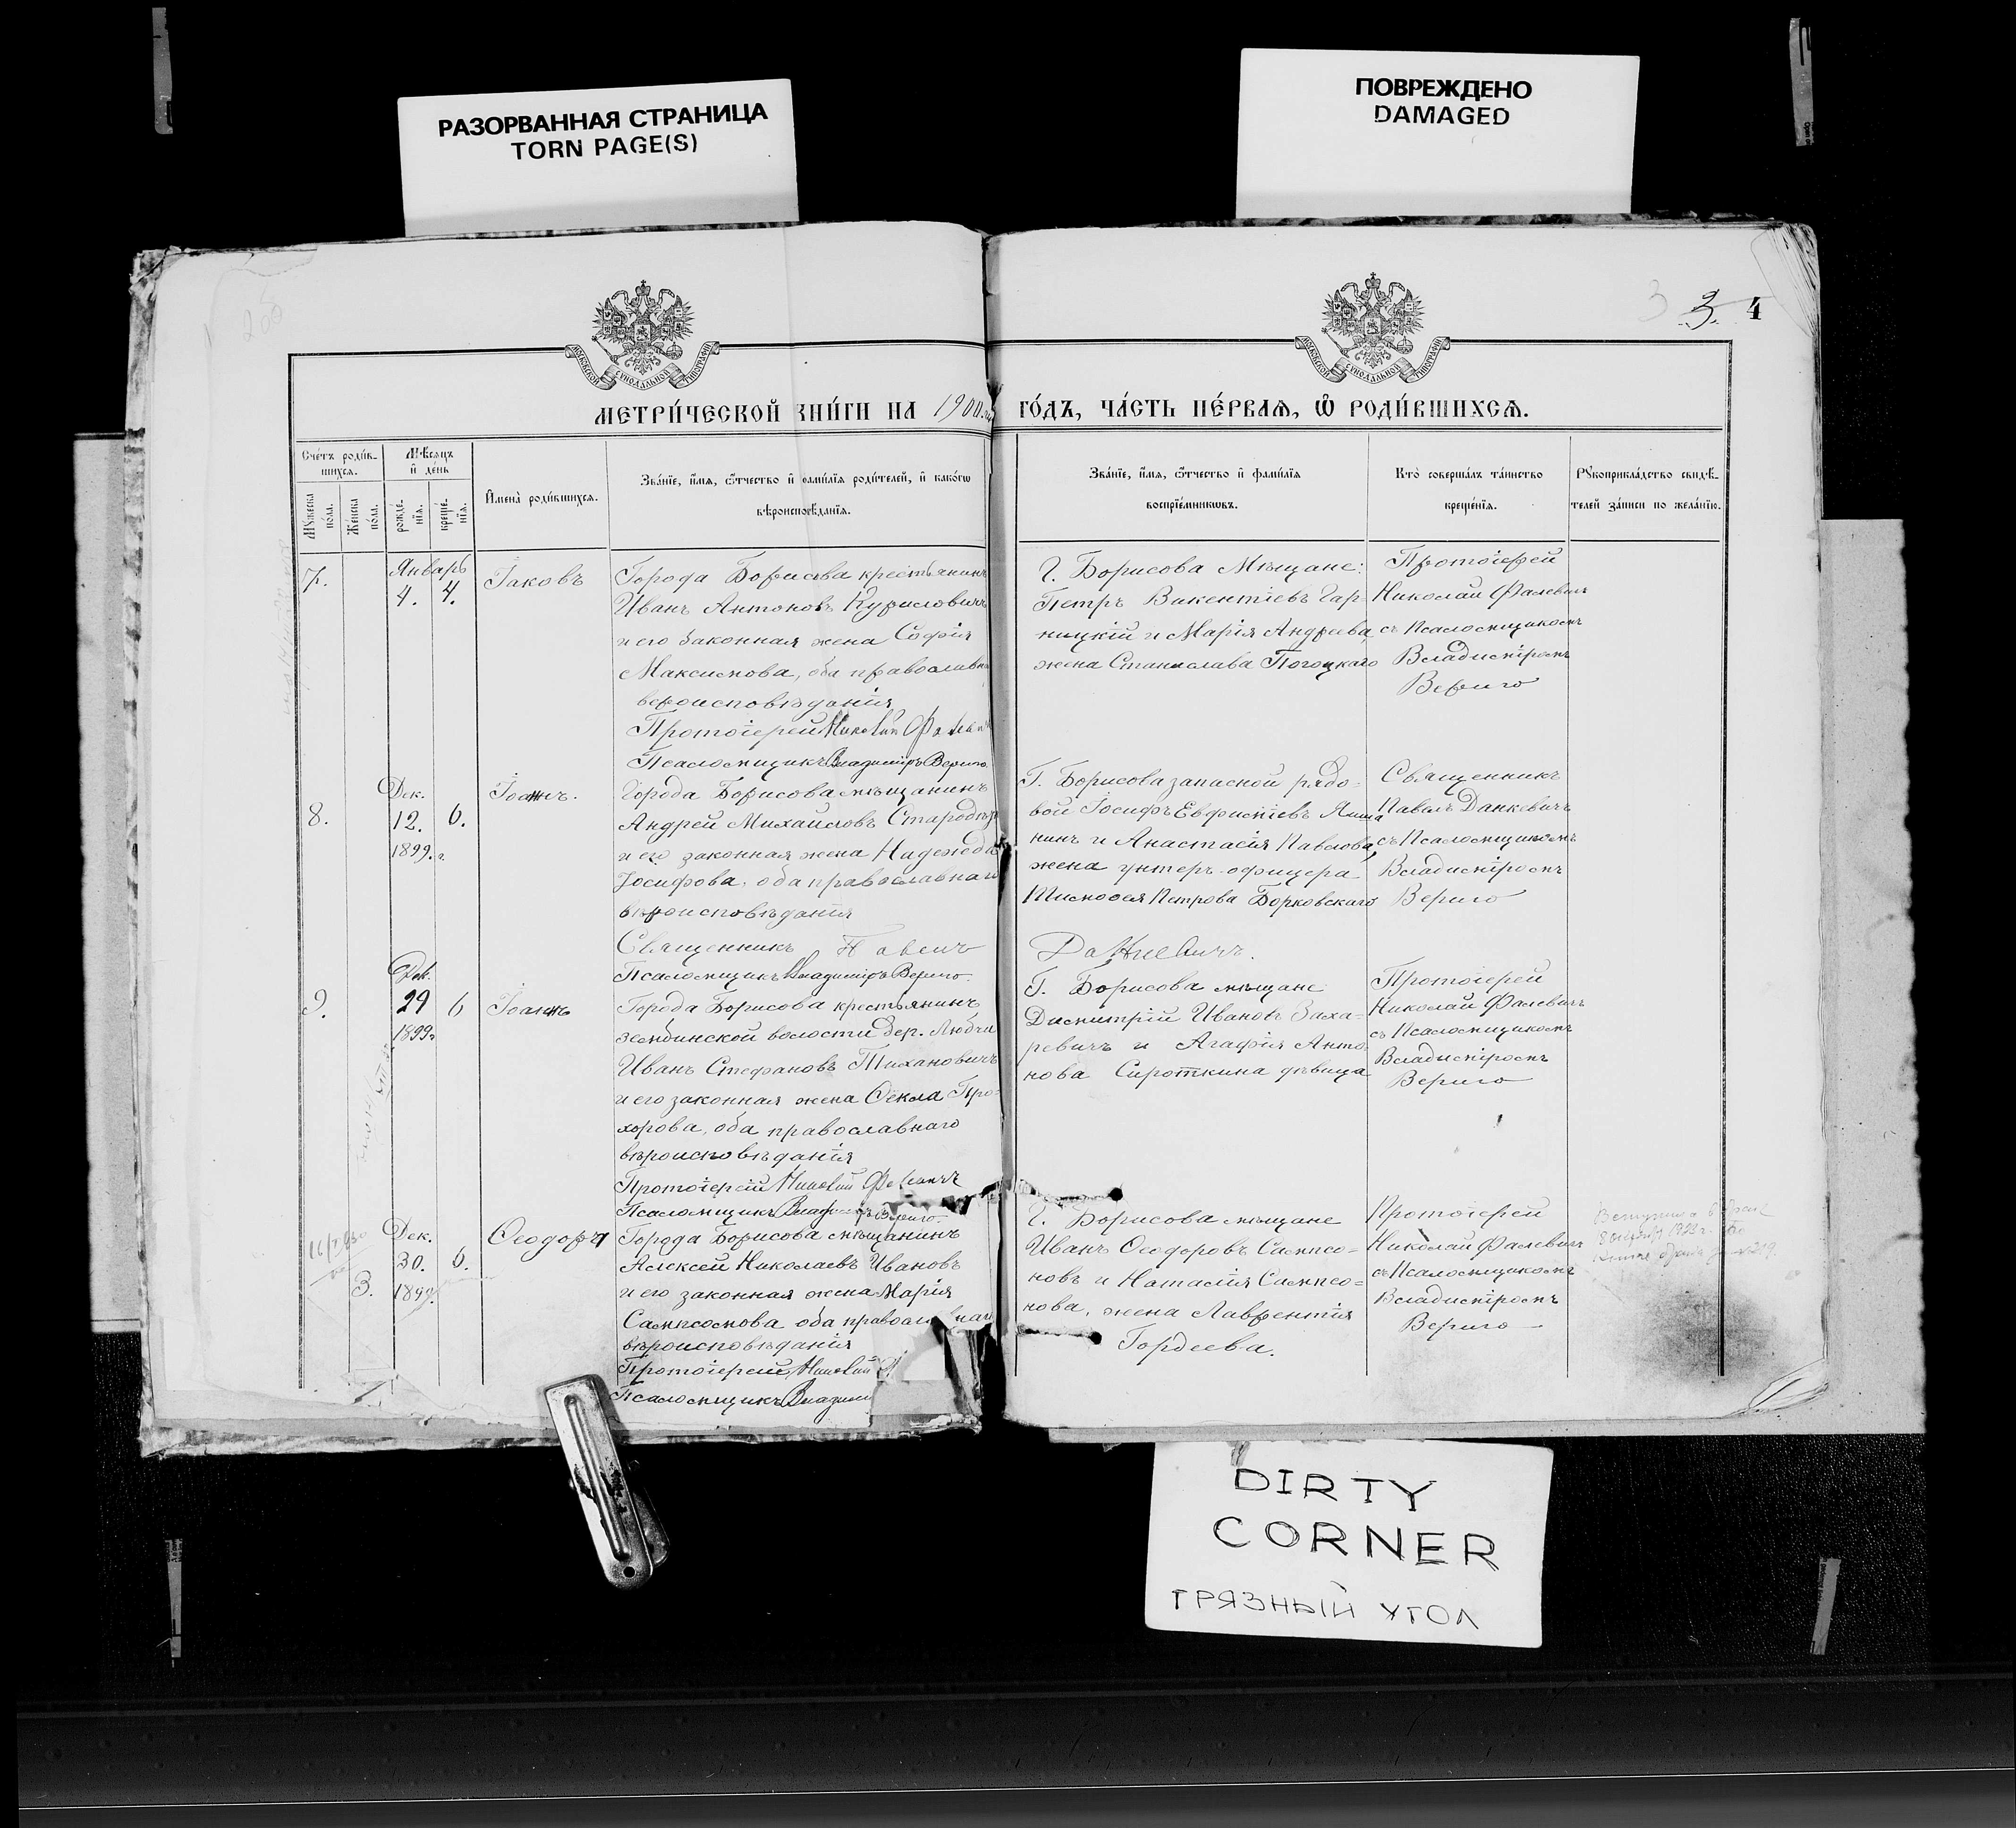 РАЗОРВАННАЯ СТРАНИЦА
TORN PAGE(S)
ПОВРЕЖДЕНО
DAMAGED
3 4
МОСКОВСКОЙ СУНОДАЛЬНОЙ ТИПОГРАФІИ
МОСКОВСКОЙ СУНОДАЛЬНОЙ ТИПОГРАФІИ
МЕТРИ́ЧЕСКОЙ КНИ́ГИ НА 1900
ГО́ДЪ, ЧА́СТЬ ПЕ́РВАЯ, Ѽ РОДИ́ВШИХСЯ.
Счéтъ роди́в-
шихся.
Мѣсяцъ
и҆ де́нь
Мꙋжеска
по́ла.
Же́нска
по́ла.
рожде́-
нїѧ.
креще́-
нїѧ.
И҆мена̀ роди́вшихся.
Зва́нїе, и҆́мя, ѻ҆́тчество и҆ фами́лїя роди́телей, и҆ како́гѡ
вѣроисповѣ́данїя.
Зва́нїе, и҆́мя, ѻ҆́тчество и҆ фами́лїя
воспрїе́мникѡвъ.
Кто̀ соверша́лъ та́инство
креще́нїя.
Рꙋкоприкла́дство свидѣ́-
телей за́писи по жела́нїю.
7.
Январь
4. 4.
Іаковъ
Города Борисова крестьянинъ
Иванъ Антоновъ Куриловичъ
и его законная жена Софія
Максимова, оба православна
вѣроисповѣданія
Протоіерей Николай Фалевичъ
Псаломщикъ Владиміръ Вериго
Г. Борисова Мѣщане:
Петръ Викентіевъ Гар-
ницкій и Марія Андреева,
жена Станислава Погоцкаго
Протоіерей
Николай Фалевичъ
съ Псаломщикомъ
Владиміромъ
Вериго
8.
Дек.
12. 6.
1899.г.
Іоаннъ.
Города Борисова мѣщанинъ
Андрей Михаиловъ
и его законная жена Надежда
Іосифова, оба православнаго
вѣроисповѣданія
Священникъ Павелъ
Данкевичъ.
Псаломщикъ Владиміръ Вериго.
Г. Борисова запасной рядо-
вой Іосифъ Евфиміевъ
нинъ и Анастасія Павлова,
жена унтеръ-офицера
Тимофея Петрова Борковскаго
Священникъ
Павелъ Данкевичъ
съ Псаломщикомъ
Владиміромъ
Вериго
9.
Дек.
29 6
1899г.
Іоаннъ
Города Борисова крестьянинъ
зембинской волости дер. Любчи
Иванъ Стефановъ Тихановичъ
и его законная жена Ѳекла Про-
хорова, оба православнаго
вѣроисповѣданія
Протоіерей Николай Фалевичъ
Псаломщикъ Владиміръ Вериго.
Г. Борисова мѣщане
Димитрій Ивановъ Заха-
ревичъ и Агафія Анто-
нова Сироткина дѣвица
Протоіерей
Николай Фалевичъ
съ Псаломщикомъ
Владиміромъ
Вериго
3.
Дек.
30. 6.
1899.
Ѳеодора
Города Борисова мѣщанинъ
Алексей Николаевъ Ивановъ
и его законная жена Марія
Сампсонова оба православнаго
вѣроисповѣданія
Протоіерей Николай
Псаломщикъ Владимі
Г. Борисова мѣщане
Иванъ Ѳеодоровъ Сампсо-
новъ и Наталія Сампсо-
нова, жена Лаврентія
Гордеева.
Протоіерей
Николай Фалевичъ
съ Псаломщикомъ
Владиміромъ
Вериго
DIRTY
CORNER
ГРЯЗНЫЙ УГОЛ